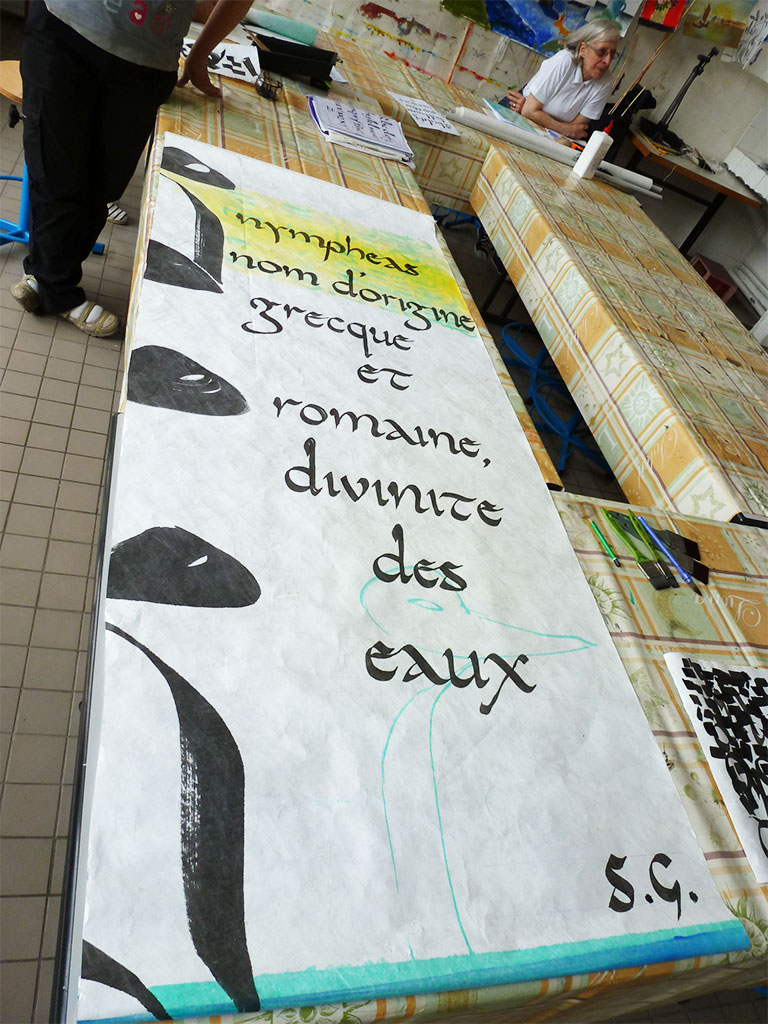 nympheas
nom d'origine
grecque
et
romaine,
divinite
des
eaux
S.G.